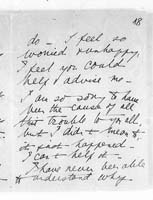 18
do - I feel so
worried & unhappy,
I feel you could
help & advise me -
I am so sorry to have
been the cause of all
this trouble to you all,
but I didn't mean to
it just - happened -
I can't help it -
I have never been able
to understand why